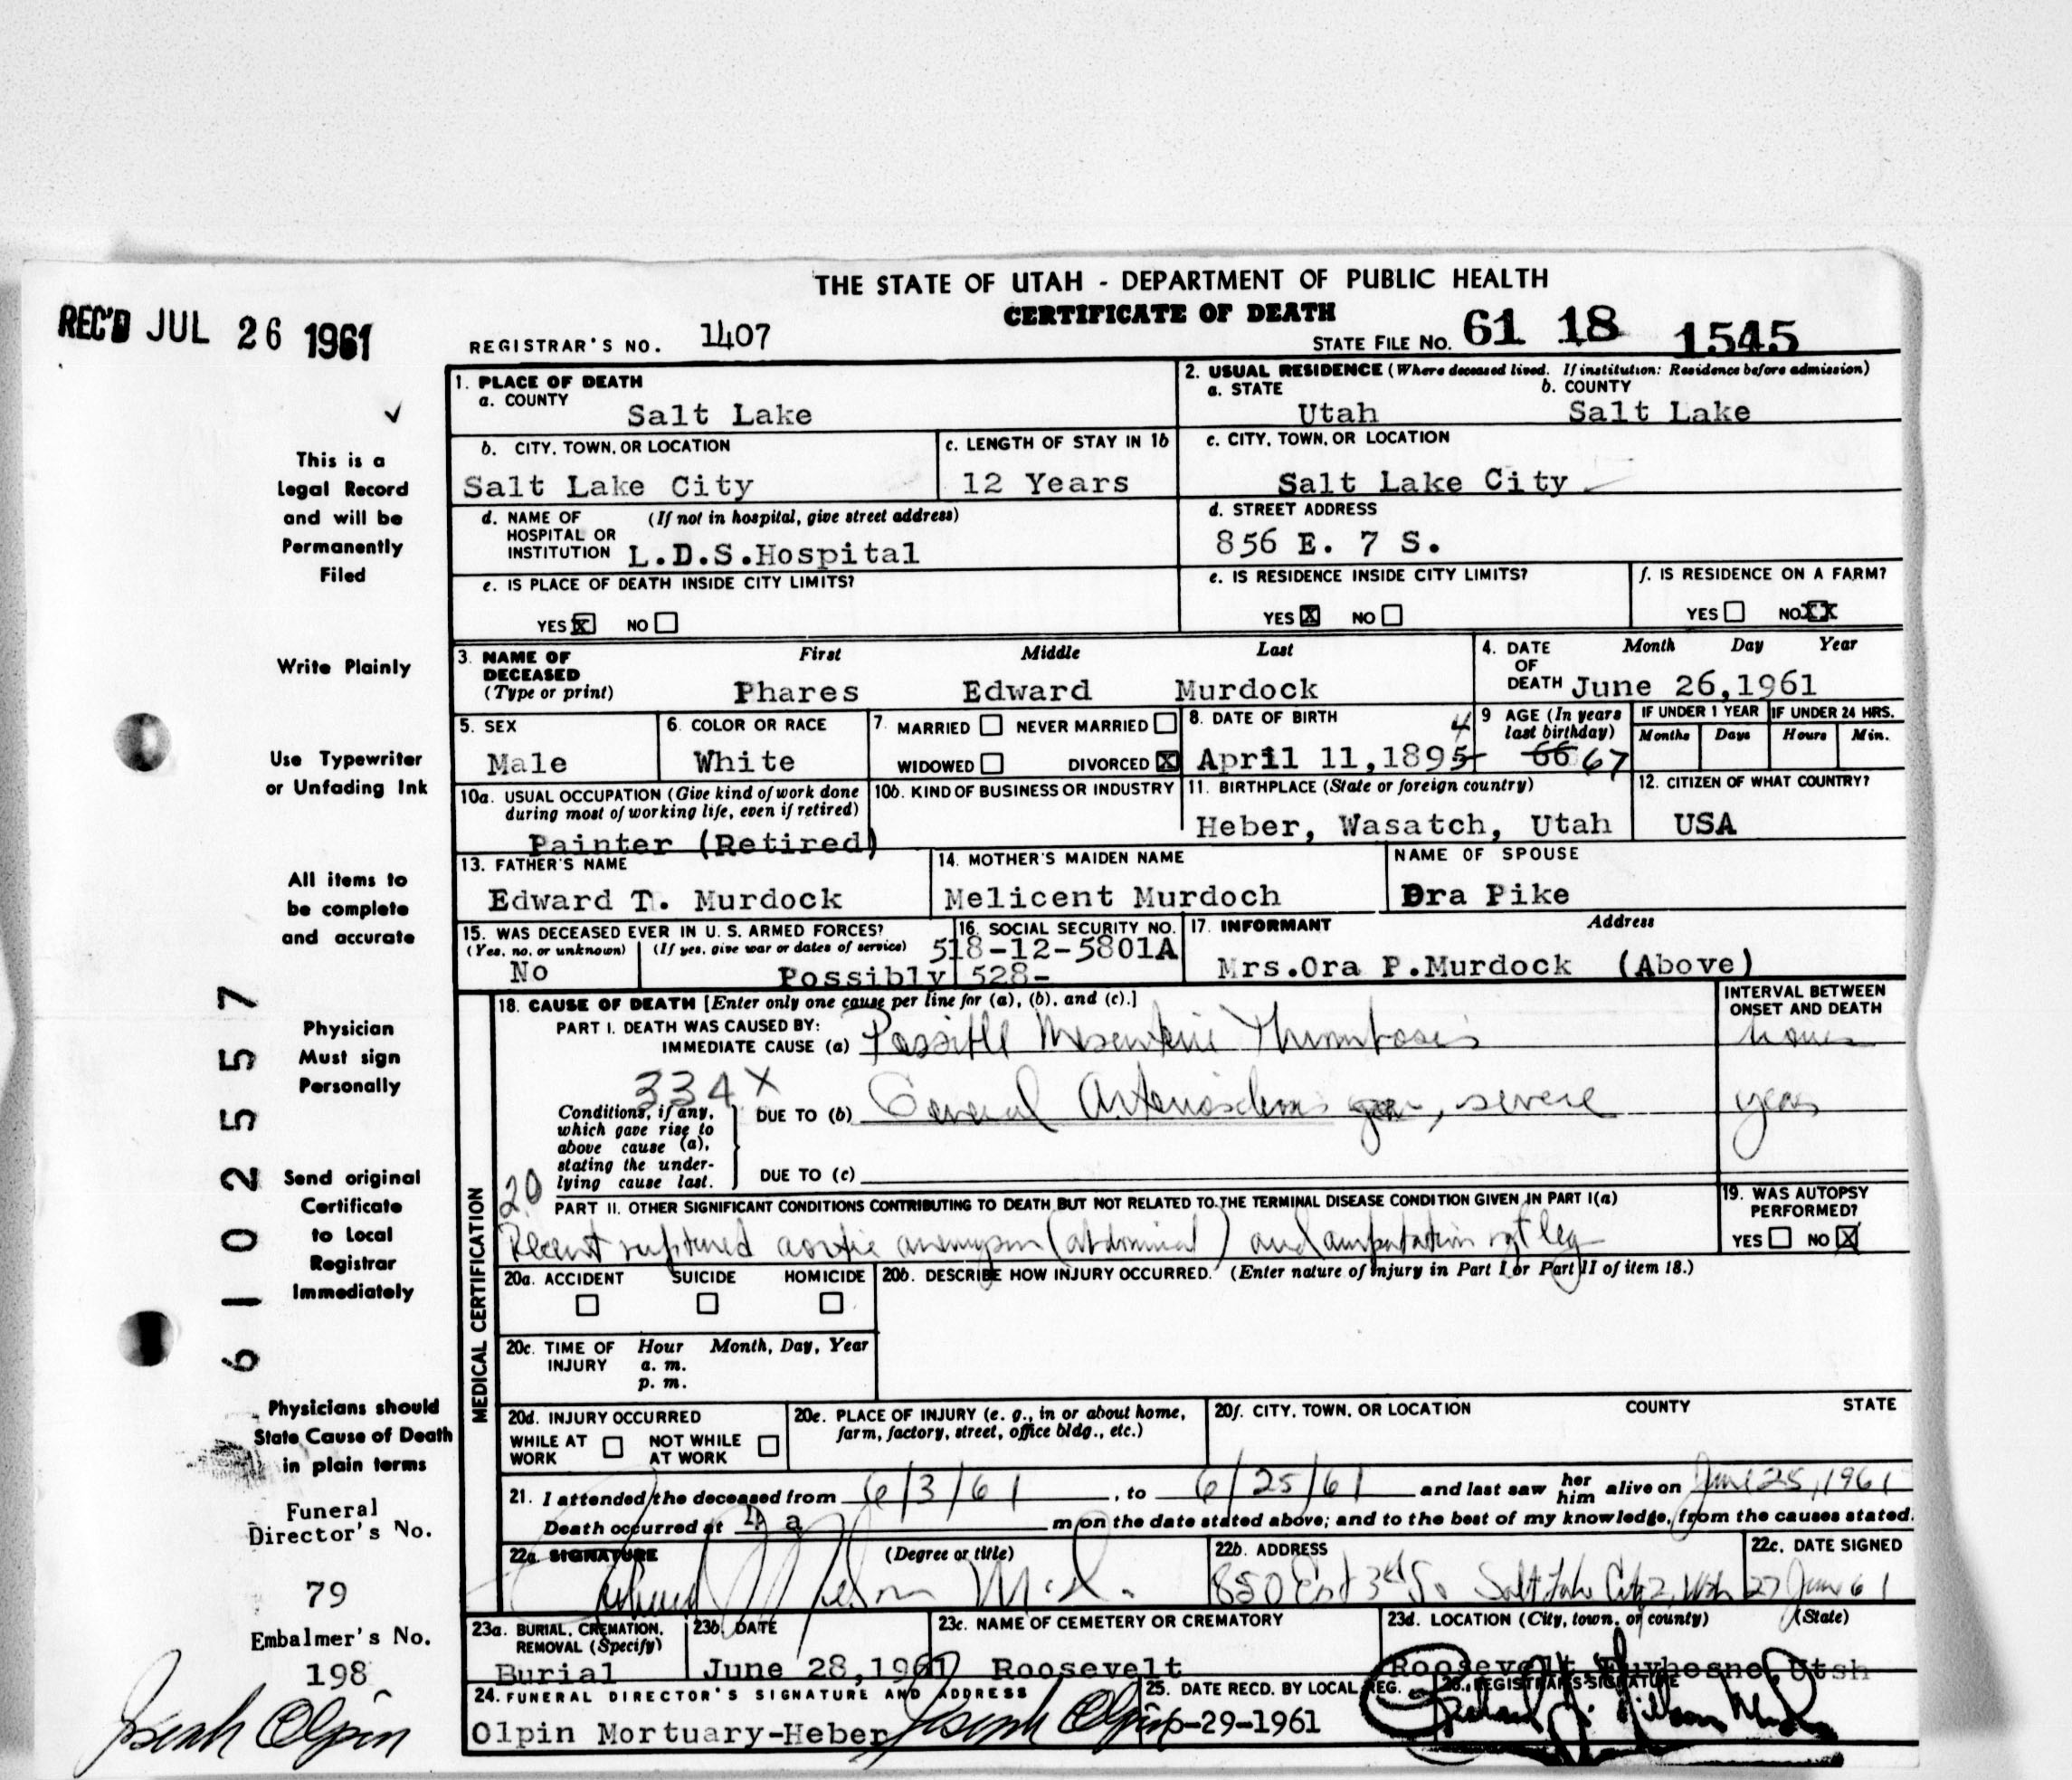 THE STATE OF UTAH - DEPARTMENT OF PUBLIC HEALTH
CERTIFICATE OF DEATH
REC'D JUL 26 1961
REGISTRAR'S NO. 1407
STATE FILE NO. 61 18 1545
1. PLACE OF DEATH
a. COUNTY
Salt Lake
2. USUAL RESIDENCE (Where deceased lived. If institution: Residence before admission)
a. STATE b. COUNTY
Utah Salt Lake
b. CITY, TOWN, OR LOCATION
Salt Lake City
c. LENGTH OF STAY IN 1b
12 Years
c. CITY, TOWN, OR LOCATION
Salt Lake City
d. NAME OF (If not in hospital, give street address)
HOSPITAL OR
INSTITUTION L.D.S.Hospital
d. STREET ADDRESS
856 E. 7 S.
e. IS PLACE OF DEATH INSIDE CITY LIMITS?
YES X NO
e. IS RESIDENCE INSIDE CITY LIMITS?
YES X NO
f. IS RESIDENCE ON A FARM?
YES NO XX
3. NAME OF First Middle Last
DECEASED
(Type or print) Phares Edward Murdock
4. DATE Month Day Year
OF
DEATH June 26,1961
5. SEX
Male
6. COLOR OR RACE
White
7. MARRIED NEVER MARRIED
WIDOWED DIVORCED X
8. DATE OF BIRTH 4
April 11,1895
9 AGE (In years
last birthday)
66 67
IF UNDER 1 YEAR IF UNDER 24 HRS.
Months Days Hours Min.
10a. USUAL OCCUPATION (Give kind of work done
during most of working life, even if retired)
Painter (Retired)
10b. KIND OF BUSINESS OR INDUSTRY
11. BIRTHPLACE (State or foreign country)
Heber, Wasatch, Utah
12. CITIZEN OF WHAT COUNTRY?
USA
13. FATHER'S NAME
Edward T. Murdock
14. MOTHER'S MAIDEN NAME
Melicent Murdoch
NAME OF SPOUSE
Ora Pike
15. WAS DECEASED EVER IN U. S. ARMED FORCES?
(Yes, no, or unknown) (If yes, give war or dates of service)
No
16. SOCIAL SECURITY NO.
518-12-5801A
Possibly 528-
17. INFORMANT Address
Mrs.Ora P.Murdock (Above)
18. CAUSE OF DEATH [Enter only one cause per line for (a), (b), and (c).]
PART I. DEATH WAS CAUSED BY:
IMMEDIATE CAUSE (a) Possible Mesenteric Thrombosis
INTERVAL BETWEEN
ONSET AND DEATH
hours
334X
Conditions, if any,
which gave rise to
above cause (a),
stating the under-
lying cause last.
DUE TO (b) General Arteriosclerosis , severe
years
DUE TO (c)
20
PART II. OTHER SIGNIFICANT CONDITIONS CONTRIBUTING TO DEATH BUT NOT RELATED TO THE TERMINAL DISEASE CONDITION GIVEN IN PART I(a)
Recent ruptured aortic aneurysm (abdominal) and amputation rgt leg
19. WAS AUTOPSY
PERFORMED?
YES NO X
MEDICAL CERTIFICATION
20a. ACCIDENT SUICIDE HOMICIDE
20b. DESCRIBE HOW INJURY OCCURRED. (Enter nature of injury in Part I or Part II of item 18.)
20c. TIME OF Hour Month, Day, Year
INJURY a. m.
p. m.
20d. INJURY OCCURRED
WHILE AT NOT WHILE
WORK AT WORK
20e. PLACE OF INJURY (e. g., in or about home,
farm, factory, street, office bldg., etc.)
20f. CITY, TOWN, OR LOCATION COUNTY STATE
21. I attended the deceased from 6/3/61, to 6/25/61 and last saw her him alive on June 25, 1961
Death occurred at 4 a m on the date stated above; and to the best of my knowledge, from the causes stated.
22a. SIGNATURE (Degree or title)
Nelson M.D.
22b. ADDRESS
850 East 3rd So Salt Lake City 2, Utah
22c. DATE SIGNED
27 June 61
23a. BURIAL, CREMATION,
REMOVAL (Specify)
Burial
23b. DATE
June 28,1961
23c. NAME OF CEMETERY OR CREMATORY
Roosevelt
23d. LOCATION (City, town, or county) (State)
Roosevelt, Duchesne, Utah
24. FUNERAL DIRECTOR'S SIGNATURE AND ADDRESS
Olpin Mortuary-Heber Joseph Olpin
25. DATE RECD. BY LOCAL REG.
6-29-1961
26. REGISTRAR'S SIGNATURE
This is a
Legal Record
and will be
Permanently
Filed
Write Plainly
Use Typewriter
or Unfading Ink
All items to
be complete
and accurate
Physician
Must sign
Personally
Send original
Certificate
to Local
Registrar
Immediately
Physicians should
State Cause of Death
in plain terms
Funeral
Director's No.
79
Embalmer's No.
198
Joseph Olpin
61 02557